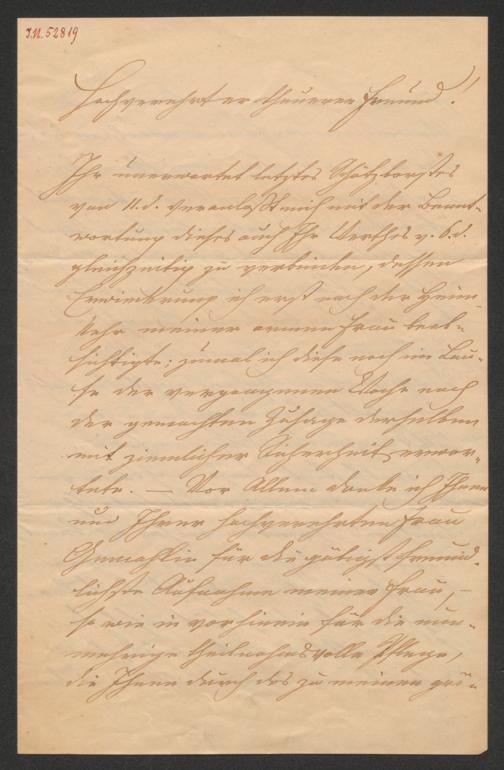 J.N. 52819
Hochverehrter theuerer Freund!
Ihr unerwartet letztes Schätzbarstes
von 11. d. veranlaßt mich mit der Beant-
wortung dieses auch Ihr Werthes v. 6. d.
gleichzeitig zu verbinden, dessen
Erwiederung ich erst nach der Heim-
kehr meiner armen Frau beab-
sichtigte; zumal ich diese noch im Lau-
fe der vergangenen Woche nach
der gemachten Zusage derselben
mit ziemlicher Sicherheit erwar-
tete. — Vor Allem danke ich Ihnen
und Ihrer hochverehrten Frau
Gemahlin für die gütigst freund-
lichste Aufnahme meiner Frau, –
so wie in vorhinein für die nun-
mehrige theilnahmsvolle Pflege,
die Ihnen durch das zu meinem grö-